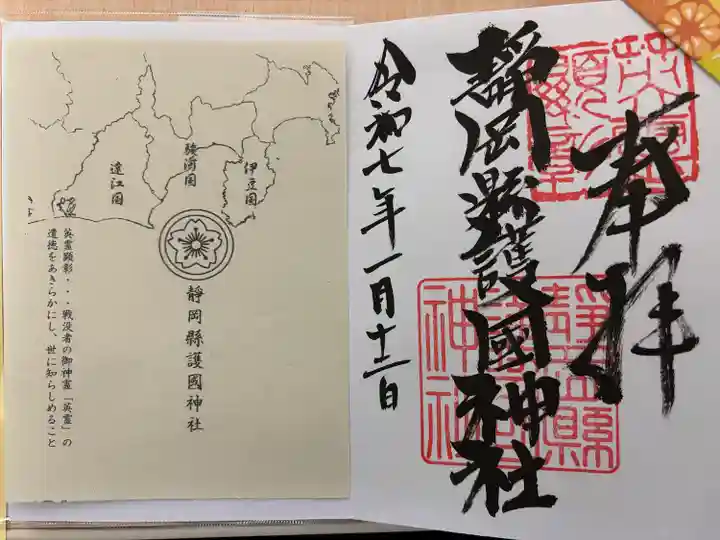 奉拝
英霊
顕彰
靜岡縣護國神社
靜岡縣
護國
神社
令和七年一月十二日
伊豆国
駿河国
遠江国
靜岡縣護國神社
英霊顕彰・・・戦没者の御神霊「英霊」の
道徳をあきらかにし、世に知らしめること